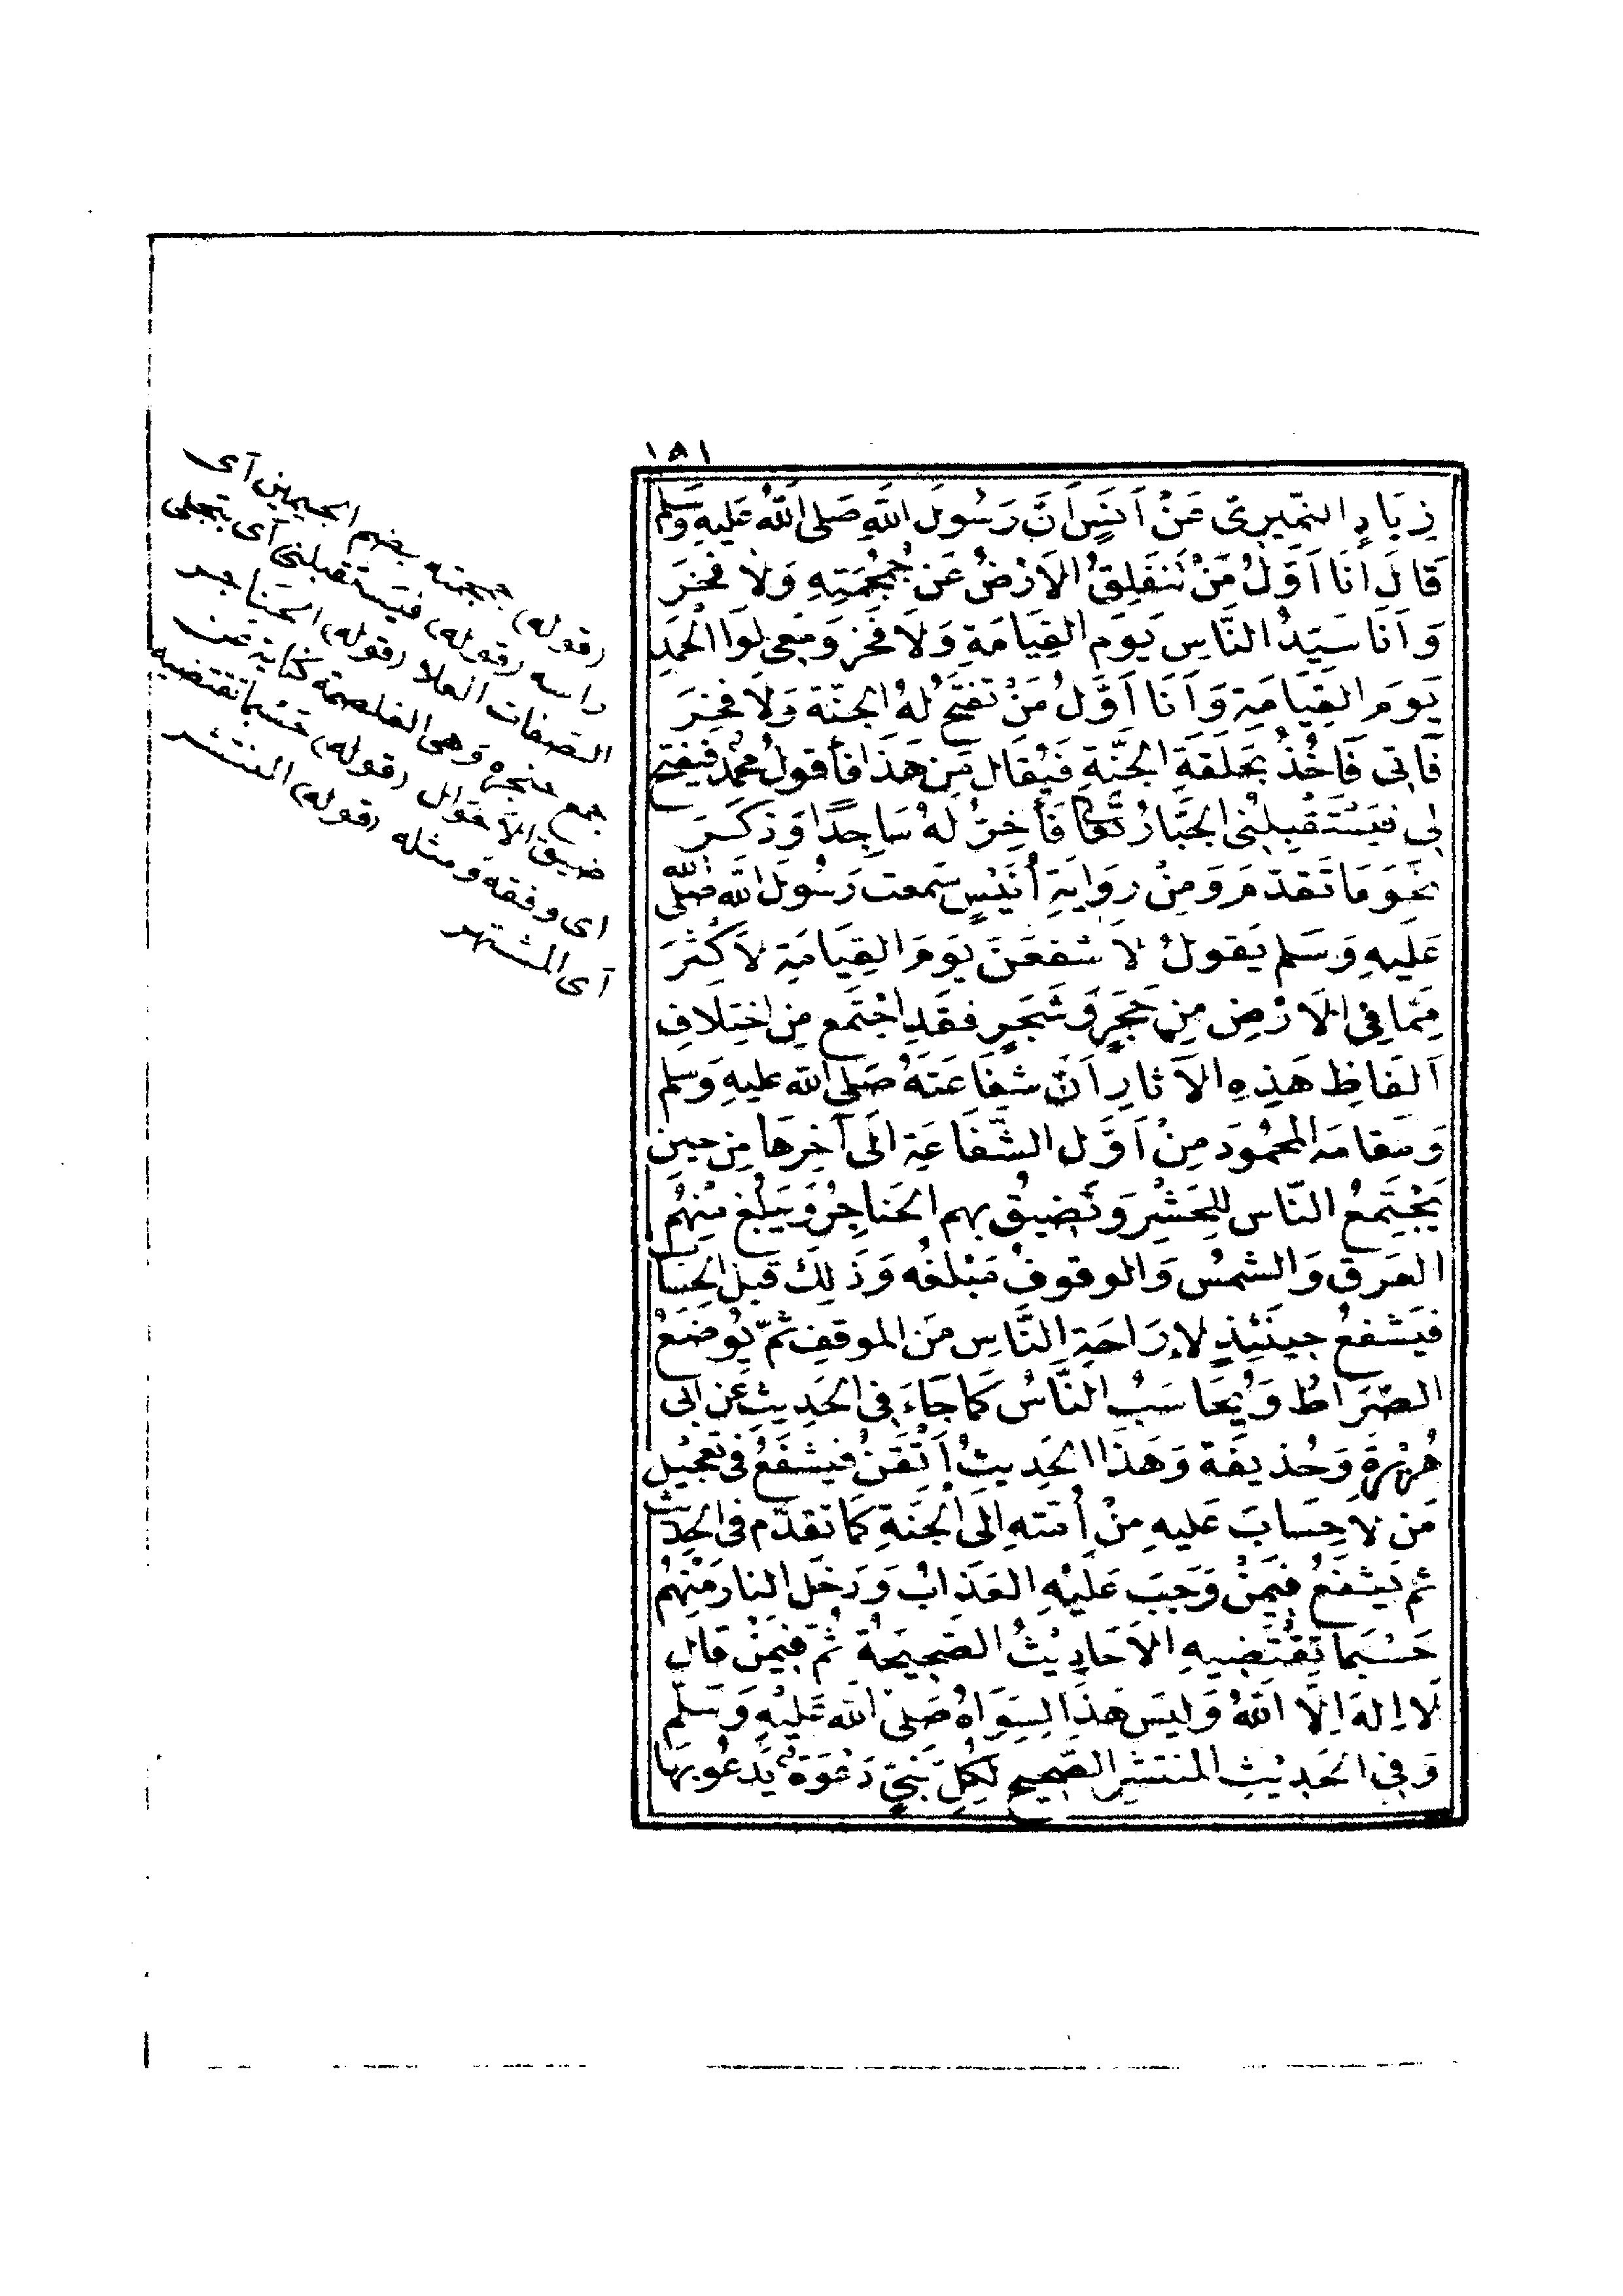 ١٨١
زِيَادٍ النُّمَيرِيّ عَنْ اَنَسٍ اَنَّ رَسُولَ اللّٰهِ صَلَّى اللّٰهُ عَلَيهِ وَسَلَّم
قَالَ اَنَا اَوَّلُ مَنْ تَنفَلِقُ الاَرْضُ عَن جُمجُمَتِهِ وَلاَ فَخرَ
وَاَنَا سَيِّدُ النَّاسِ يَومَ القِيَامَةِ وَلاَ فَخرَ وَمَعِى لِوَا الْحَمدِ
يَومَ القِيَامَةِ وَاَنَا اَوَّلُ مَنْ تفتَحُ لهُ الجنّة وَلاَ فَخرَ
فَآتِى فَآخُذُ بحَلقةِ الجَنَّةِ فيُقَال مَن هَذَا فأقولُ محمّد فيُفتح
لى فيَسْتَقبِلنُى الجبَّارُ تعَا فَأَخِرُّ لهُ سَاجِدًا وَذكَرَ
نحوَ مَا تَقدّمَ وَمِنْ رِوَايةِ أُنَيْسٍ سَمعت رَسُولَ الله صَلَّى الله
عَلَيهِ وَسَلم يَقولُ لاَشفعَنّ يَومَ القِيَامَةِ لاَكْثَرَ
مِمَّا فِى الاَرْضِ مِن حَجَرٍ وَشَجَرٍ فقَدِ اجْتَمع مِن اخْتِلاَفِ
اَلفَاظِ هَذِهِ الآثارِ اَنّ شفَاعَتَهُ صَلى الله عليهِ وَسلم
وَمقامَه المحمُودَ مِنْ اَوَّلِ الشَّفَاعَةِ الَى آخِرِهَا مِن حين
يَجْتَمعُ النّاس لِلحَشْرِ وَتَضِيقُ بهم الحَناجِرُ وَيَبلُغ مِنهُم
العرَقُ وَالشمسُ وَالوقوفُ مَبْلغَه وَذَلِكَ قَبلَ الحِسَا
فيَشفعُ حِينَئِذٍ لإرَاحَةِ النَّاسِ مِنَ الموقفِ ثمّ يُوضَعُ
الصِّرَاطُ وَيُحَاسَبُ النَّاسُ كمَا جَاءَ فِى الحَدِيثِ عَن ابى
هُرَيرَةَ وَحُذيفَة وَهَذا الحَديثُ اَتْقَنُ فيشفَعُ فى تَعجيل
مَن لاحِسَابَ عَليهِ مِنْ أمّتهِ الَى الجَنَّةِ كمَا تقدّم فى الحَديث
ثم يَشفَعُ فيمَنْ وَجَبَ عَلَيْهِ العَذابُ وَدَخَلَ النارَ مِنْهُم
حَسْبَمَا تَقْتَضِيهِ الاَحَادِيْثُ الصَّحِيحَةُ ثُمّ فِيمَنْ قالَ
لاَ الهَ الاَّ اللهُ وَليَسَ هَذَا لِسِوَاهُ صَلى الله عَلَيْهِ وَسَلَّم
وَفى الحَدِيْثِ المنتشرِ الصَّحِيح لكُلِّ نَبىٍّ دَعْوَة يَدعُو بهَا
(قوله) جمجمته بضم الجيمين آى
راسه (قوله) فيَستقبلنى آى يتجلى
الصّفات العلا (قوله) الحنَاجر
جمع حنجرة وَهى الغلصمة كناية عَن
ضيق الأقوال (قوله) حَسْبما تقتضيه
اى وفقه وَمثله (قوله) المنتشر
آى المشتهر